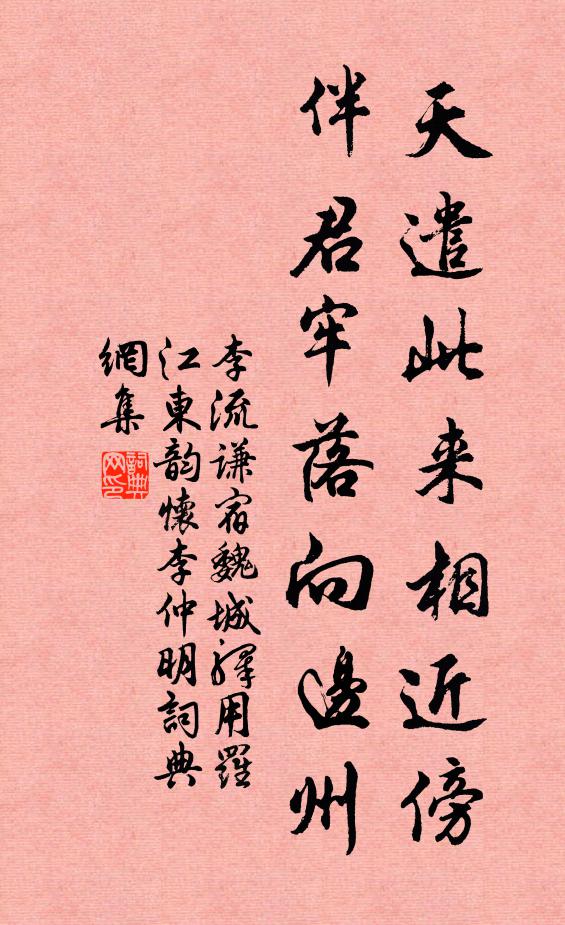 天遣此来相近傍
伴君牢落向邊州
李流谦宿魏城驿用羅
江東韵懷李仲明詞典
網集
詞典网印